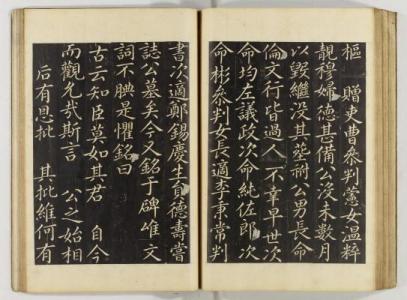 樞　贈吏曹叅判薳女溫粹
靚穆婦德甚備公沒未數月
以毀繼沒其塟祔公男長命
倫文行皆過人不幸早世次
命均左議政次命純佐郎次
命彬叅判女長適李秉常判
書次適鄭錫慶生貟德壽嘗
誌公墓矣今又銘于碑唯文
詞不腆是懼銘曰
古云知臣莫如其君　自今
而觀允哉斯言　公之始相
后有恩批　其批維何有